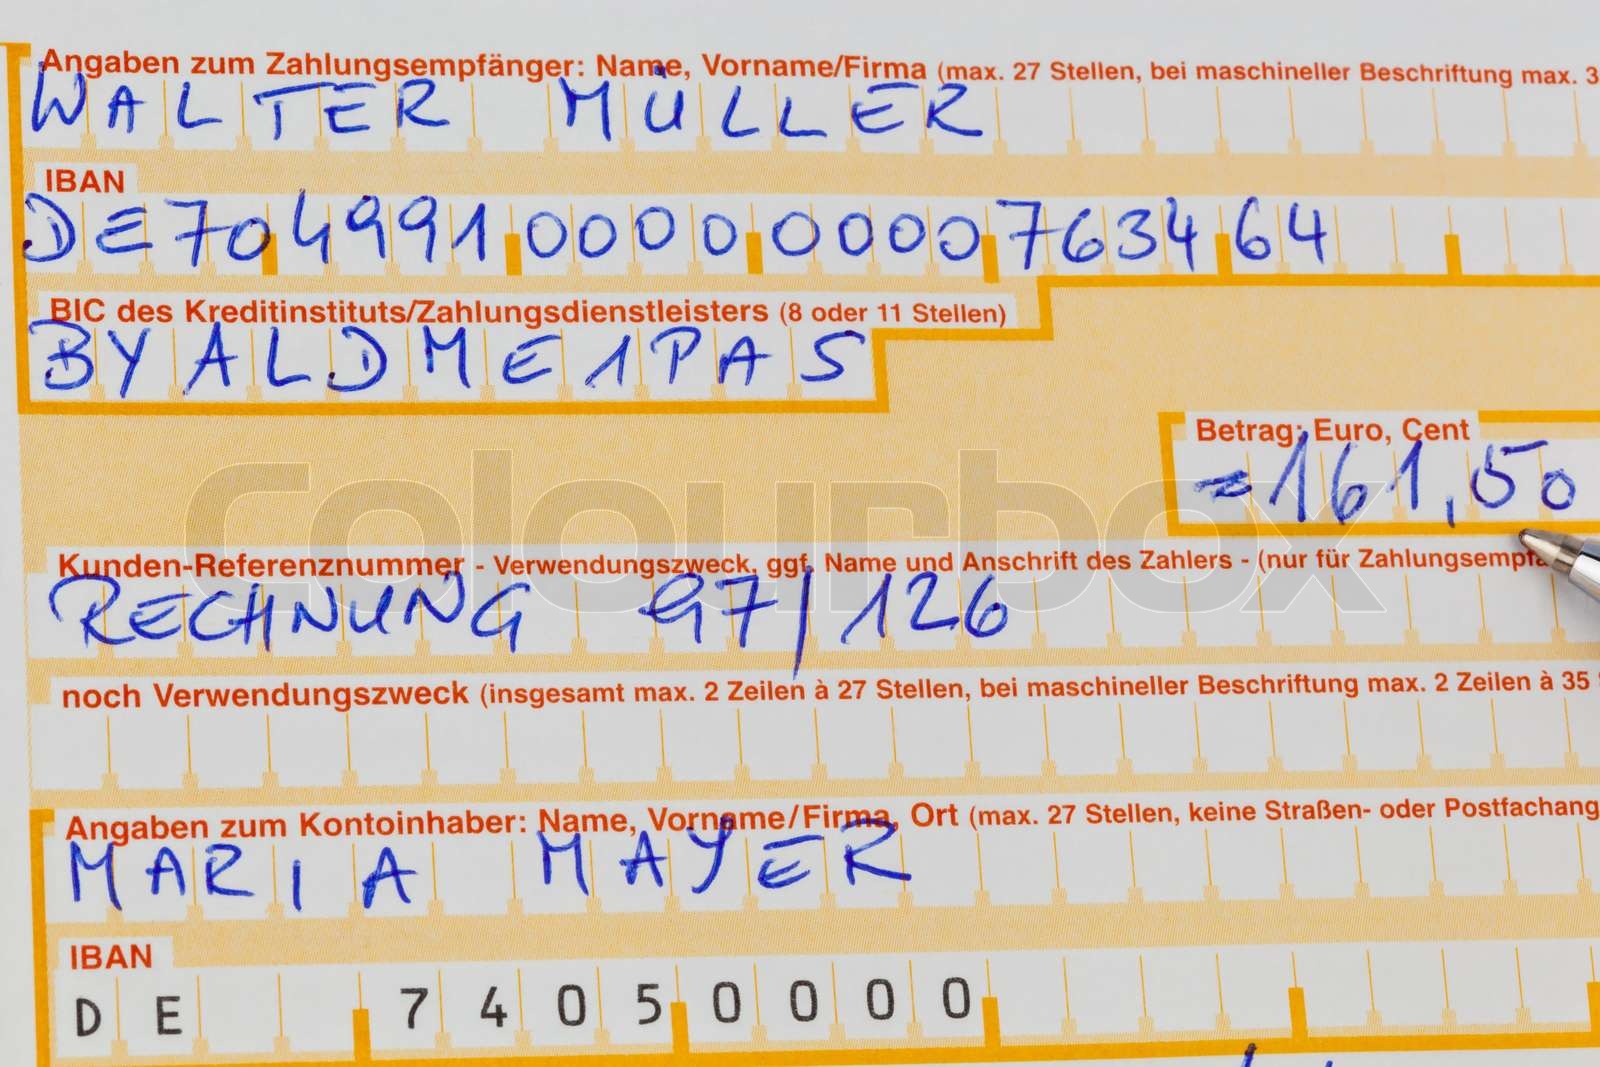 Angaben zum Zahlungsempfänger: Name, Vorname/Firma (max. 27 Stellen, bei maschineller Beschriftung max. 3
WALTER MÜLLER
IBAN
DE70499100000000763464
BIC des Kreditinstituts/Zahlungsdienstleisters (8 oder 11 Stellen)
BYALDME1PAS
Betrag: Euro, Cent
=161,50
colourbox
Kunden-Referenznummer - Verwendungszweck, ggf. Name und Anschrift des Zahlers - (nur für Zahlungsempfä
RECHNUNG 97/126
noch Verwendungszweck (insgesamt max. 2 Zeilen à 27 Stellen, bei maschineller Beschriftung max. 2 Zeilen à 35
Angaben zum Kontoinhaber: Name, Vorname/Firma, Ort (max. 27 Stellen, keine Straßen- oder Postfachang
MARIA MAYER
IBAN
DE 74050000